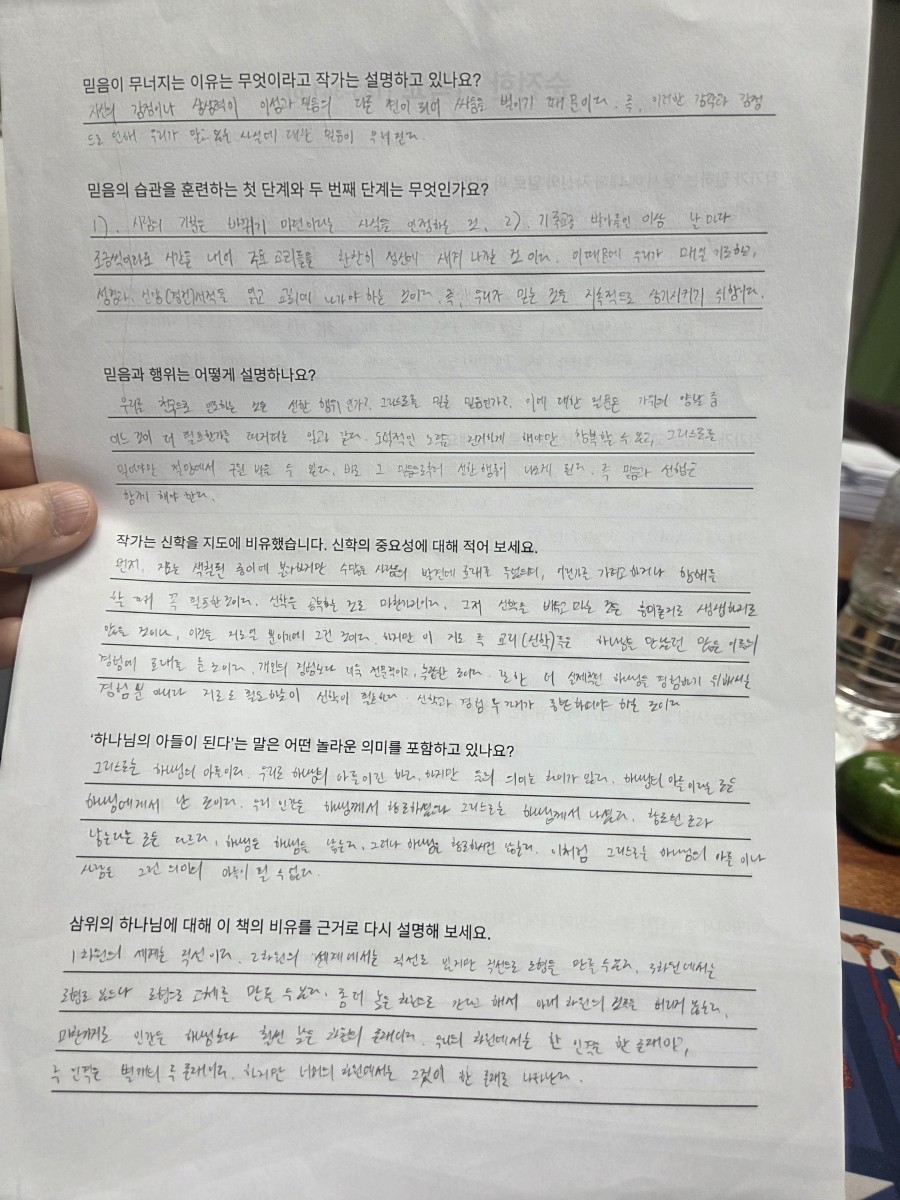 믿음이 무너지는 이유는 무엇이라고 작가는 설명하고 있나요?
자신의 감정이나 상상력이 이성과 믿음의 다른 편이 되어 싸움을 벌이기 때문이다. 즉, 이러한 감정
으로 인해 우리가 알고 있는 사실에 대한 믿음이 무너진다.
믿음의 습관을 훈련하는 첫 단계와 두 번째 단계는 무엇인가요?
1). 사람의 기분은 바뀌기 마련이라는 사실을 인정하는 것, 2). 기독교를 받아들인 이상 날마다
조금씩이라도 시간을 내어 주요 교리들을 찬찬히 정신에 새겨 나갈 것이다. 이때문에 우리가 매일 기도하고,
성경과 신앙 서적들을 읽고 교회에 나가야 하는 것이다. 즉, 우리가 믿는 것을 지속적으로 상기시키기 위함이다.
믿음과 행위는 어떻게 설명하나요?
우리를 천국으로 인도하는 것은 선한 행위인가? 그리스도를 믿는 믿음인가? 이에 대한 질문은 가위의 양날 중
어느 것이 더 필요한가를 따지는 일과 같다. 도덕적인 노력 해야만 항복할 수 있고, 그리스도를
믿어야만 절망에서 구원 받을 수 있다. 바로 그 믿음으로부터 선한 행동이 나오게 된다. 즉 믿음과 선행은
함께 해야 한다.
작가는 신학을 지도에 비유했습니다. 신학의 중요성에 대해 적어 보세요.
먼저, 지도는 색칠된 종이에 불과하지만 수많은 사람의 발견에 토대를 두었으며, 어딘가를 가려고 하거나 항해를
할 때 꼭 필요한 것이다. 신학을 공부하는 것도 마찬가지이다. 그저 신학을 배우고 믿는 것은 흥미롭거나 생생하지도
않을 것이나, 이것은 지도일 뿐이기에 그런 것이다. 하지만 이 지도 즉 교리(신학)들은 하나님을 만났던 많은 이들의
경험에 토대를 둔 것이다. 개인의 경험보다 더욱 전문적이고, 것이다. 또한 더 하나님을 경험하기 위해서는
경험뿐 아니라 지도로 필요하듯이 신학이 필요하다. 신학과 경험 두가지가 동반하여야 하는 것이다
‘하나님의 아들이 된다’는 말은 어떤 놀라운 의미를 포함하고 있나요?
그리스도는 하나님의 아들이다. 우리도 하나님의 아들이긴 하다. 하지만 둘의 의미는 차이가 있다. 하나님의 아들이라는 것은
하나님에게서 난 것이다. 우리 인간은 하나님께서 창조하셨으나 그리스도는 하나님께서 나셨다. 창조된 것과
낳는다는 것은 다르다, 하나님은 하나님을 낳는다. 그러나 하나님은 창조하시진 않는다. 이처럼 그리스도는 하나님의 아들 이나
사람은 그런 의미의 아들이 될 수 없다.
삼위의 하나님에 대해 이 책의 비유를 근거로 다시 설명해 보세요.
1차원의 세계는 직선이다. 2차원의 세계에서는 직선도 있지만 직선으로 도형을 만들 수 있다, 3차원에서는
도형도 있으나 도형으로 고체를 만들 수 있다. 좀 더 높은 차원으로 간다 해서 아래 차원의 것들을 버리지 않는다,
마찬가지로 인간은 하나님보다 훨씬 낮은 차원의 존재이다. 우리의 차원에서는 한 인격은 한 존재이고,
두 인격은 별개의 두 존재이다. 하지만 너머의 차원에서는 그것이 한 존재로 나타난다.